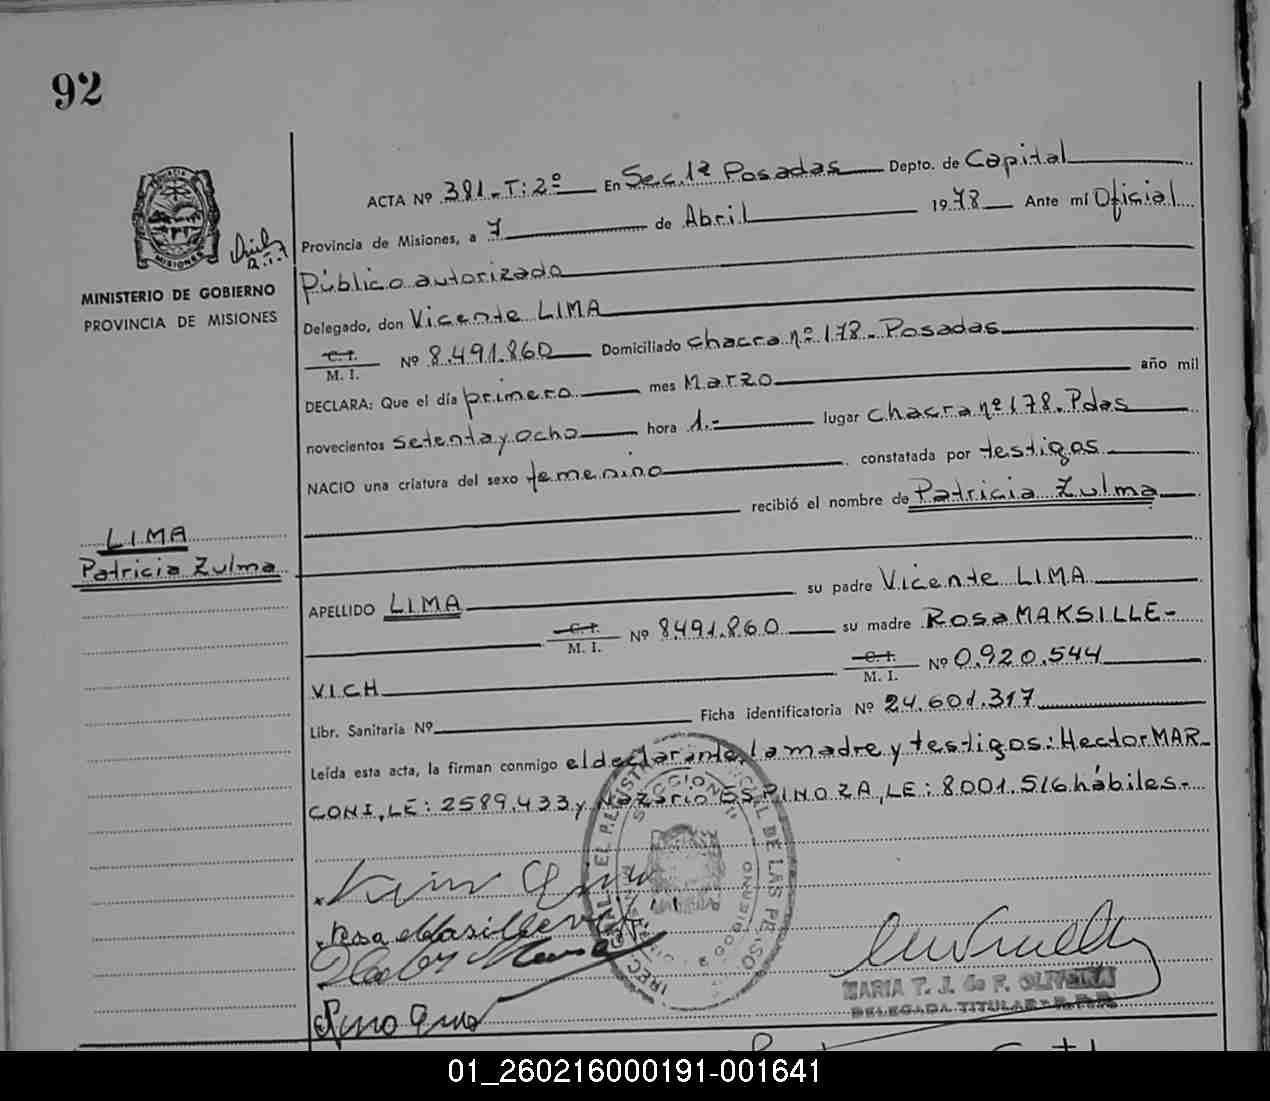 92
ACTA Nº 381-T:2º En Sec.1ª Posadas Depto. de Capital
Provincia de Misiones, a 7 de Abril 1978 Ante mí Oficial
Público autorizado
MISIONES
MINISTERIO DE GOBIERNO
PROVINCIA DE MISIONES
Delegado, don Vicente LIMA
C.I.
M. I. Nº 8.491.860 Domiciliado chacra nº 178- Posadas
DECLARA: Que el día primero mes Marzo año mil
novecientos setenta y ocho hora 1.- lugar chacra nº 178- Pdas
NACIO una criatura del sexo femenino constatada por testigos
recibió el nombre de Patricia Zulma
LIMA
Patricia Zulma
APELLIDO LIMA su padre Vicente LIMA
C.I.
M. I. Nº 8491.860 su madre Rosa MAKSILLE-
VICH C.I.
M. I. Nº 0.920.544
Libr. Sanitaria Nº Ficha identificatoria Nº 24.601.317
Leída esta acta, la firman conmigo el declarante, la madre y testigos: Hector MAR-
CONI, LE: 2589.433 y Nazario ESPINOZA, LE: 8001.516 hábiles-
MARIA T. J. de F. OLIVEIRA
DELEGADA TITULAR
01_260216000191-001641